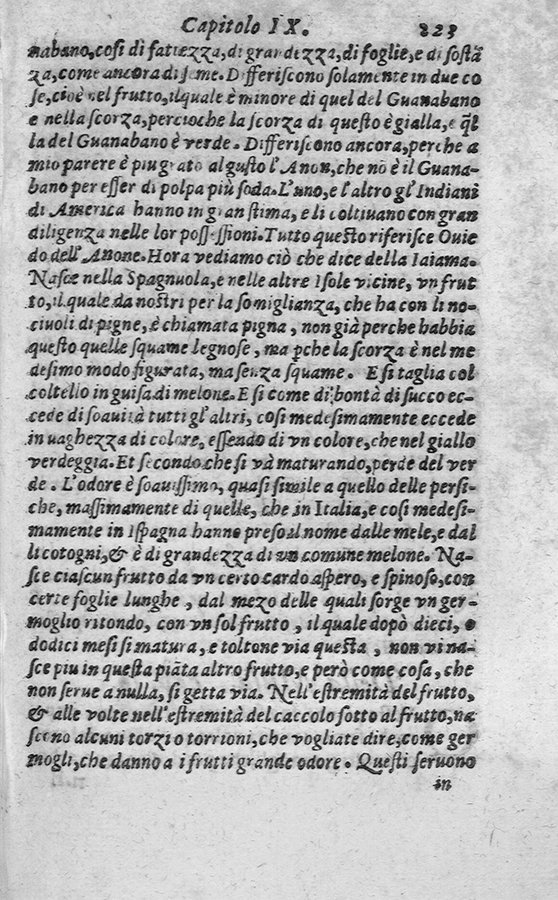 Capitolo IX. 223
nabano, cosi di fattezza, di grandezza, di foglie, e di sostã
za, come ancora di seme. Differiscono solamente in due co
se, cioè nel frutto, il quale è minore di quel del Guanabano
e nella scorza, percioche la scorza di questo è gialla, e q̃l
la del Guanabano è verde. Differiscono ancora, perche a
mio parere è piu grato al gusto l'Anon, che nõ è il Guana-
bano per esser di polpa più soda. L'uno, e l'altro gl'Indiani
di America hanno in gran stima, e li coltiuano con gran
diligenza nelle lor possessioni. Tutto questo riferisce Ouie
do dell'Anone. Hora vediamo ciò che dice della Iaiama.
Nasce nella Spagnuola, e nelle altre Isole vicine, vn frut
to, il quale da nostri per la somiglianza, che ha con li no-
ciuoli di pigne, è chiamata pigna, non già perche habbia
questo quelle squame legnose, ma p̃che la scorza è nel me
desimo modo figurata, ma senza squame. E si taglia col
coltello in guisa di melone. E si come di bontà di succo ec-
cede di soauità tutti gl'altri, cosi medesimamente eccede
in uaghezza di colore, essendo di vn colore, che nel giallo
verdeggia. Et secondo che si và maturando, perde del ver
de. L'odore è soauissimo, quasi simile a quello delle persi-
che, massimamente di quelle, che in Italia, e cosi medesi-
mamente in Ispagna hanno preso il nome dalle mele, e dal
li cotogni, & è di grandezza di un comune melone. Na-
sce ciascun frutto da vn certo cardo aspero, e spinoso, con
certe foglie lunghe, dal mezo delle quali sorge vn ger-
moglio ritondo, con vn sol frutto, il quale dopò dieci, o
dodici mesi si matura, e toltone via questa, non vi na-
sce piu in questa piãta altro frutto, e però come cosa, che
non serue a nulla, si getta via. Nell'estremità del frutto,
& alle volte nell'estremità del caccolo sotto al frutto, na
scono alcuni torzi o torrioni, che vogliate dire, come ger
mogli, che danno a i frutti grande odore. Questi seruono
in